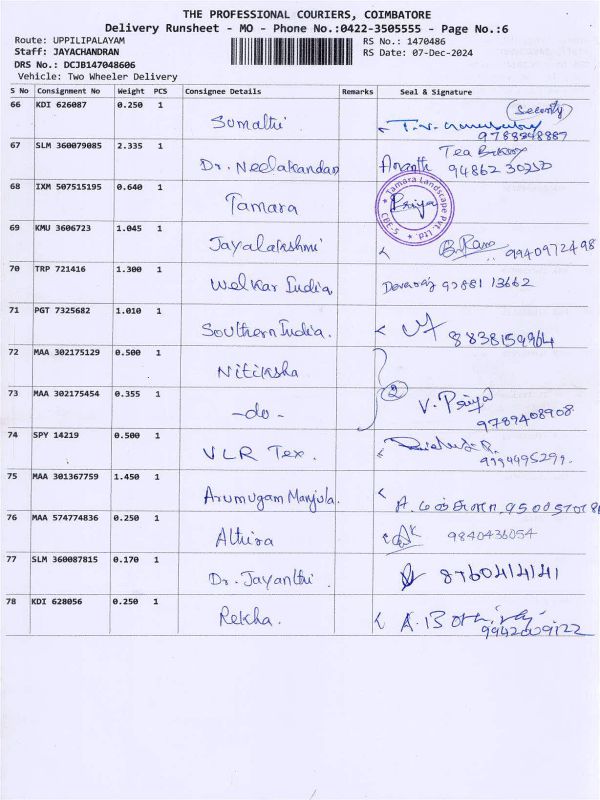 THE PROFESSIONAL COURIERS, COIMBATORE
Delivery Runsheet - MO - Phone No.:0422-3505555 - Page No.:6
Route: UPPILIPALAYAM RS No.: 1470486
Staff: JAYACHANDRAN RS Date: 07-Dec-2024
DRS No.: DCJB147048606
Vehicle: Two Wheeler Delivery
S No Consignment No Weight PCS Consignee Details Remarks Seal & Signature
66 KDI 626087 0.250 1 Sumathi Security
9788248887
67 SLM 360079085 2.335 1 Dr. Neelakandan Tea Bakery
94862 30250
68 IXM 507515195 0.640 1 Tamara Priya
Tamara Landscape Pvt. Ltd. CBE-5
69 KMU 3606723 1.045 1 Jayalakshmi 9940972498
70 TRP 721416 1.300 1 Welkar India Devaraj 97881 13662
71 PGT 7325682 1.010 1 Southern India. 8838159964
72 MAA 302175129 0.500 1 Nitiksha
73 MAA 302175454 0.355 1 -do- 2 V. Priya
9789408908
74 SPY 14219 0.500 1 VLR Tex. 9994495299.
75 MAA 301367759 1.450 1 Arumugam Manjula.
76 MAA 574774836 0.250 1 Athira 9840436054
77 SLM 360087815 0.170 1 Dr. Jayanthi 8760414141
78 KDI 628056 0.250 1 Rekha.
9942009122